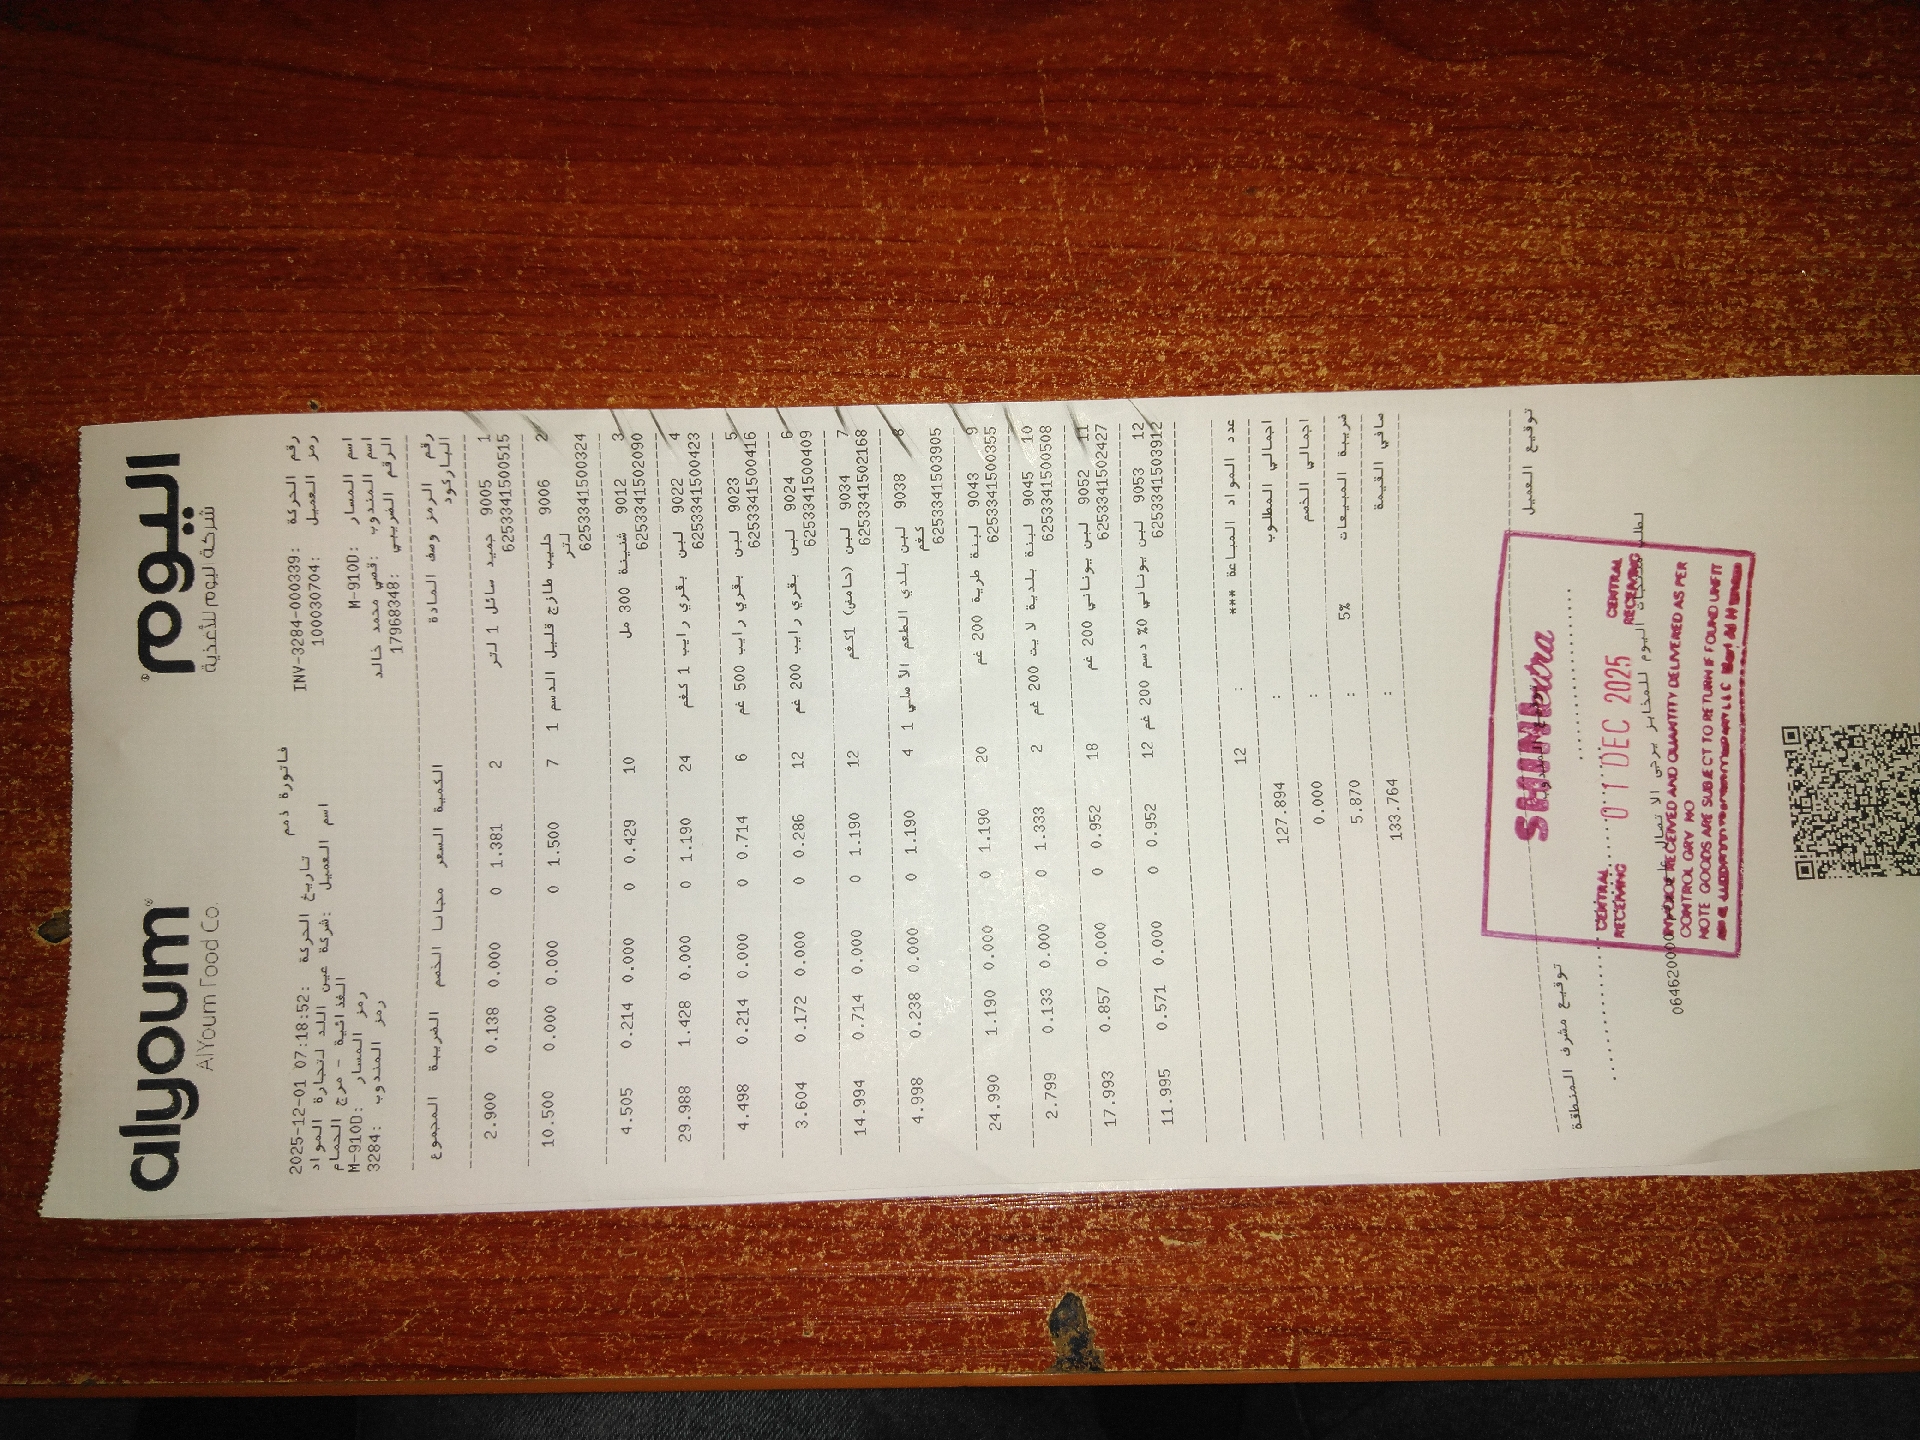 alyoum® اليوم®
AlYoum Food Co. شركة اليوم للأغذية
فاتورة ذمم
رقم الحركة: INV-3284-000339 تاريخ الحركة: 2025-12-01 07:18:52
رمز العميل: 100030704 اسم العميل: شركة عين اللد لتجارة المواد
الغذائية - مرج الحمام
اسم المسار: M-910D رمز المسار: M-910D
اسم المندوب: قصي محمد خالد رمز المندوب: 3284
الرقم الضريبي: 17968348
رقم الرمز وصف المادة الكمية السعر مجانا الخصم الضريبة المجموع
الباركود
1 9005 جميد سائل 1 لتر 2 1.381 0 0.000 0.138 2.900
6253341500515
2 9006 حليب طازج قليل الدسم 1 7 1.500 0 0.000 0.000 10.500
لتر
6253341500324
3 9012 شنينة 300 مل 10 0.429 0 0.000 0.214 4.505
6253341502090
4 9022 لبن بقري رايب 1 كغم 24 1.190 0 0.000 1.428 29.988
6253341500423
5 9023 لبن بقري رايب 500 غم 6 0.714 0 0.000 0.214 4.498
6253341500416
6 9024 لبن بقري رايب 200 غم 12 0.286 0 0.000 0.172 3.604
6253341500409
7 9034 لبن (حامض) 1كغم 12 1.190 0 0.000 0.714 14.994
6253341502168
8 9038 لبن بلدي الطعم الأصلي 1 4 1.190 0 0.000 0.238 4.998
كغم
6253341503905
9 9043 لبنة طرية 200 غم 20 1.190 0 0.000 1.190 24.990
6253341500355
10 9045 لبنة بلدية لايت 200 غم 2 1.333 0 0.000 0.133 2.799
6253341500508
11 9052 لبن يوناني 200 غم 18 0.952 0 0.000 0.857 17.993
6253341502427
12 9053 لبن يوناني 0% دسم 200 غم 12 0.952 0 0.000 0.571 11.995
6253341503912
عدد المواد المباعة *** : 12
اجمالي المطلوب : 127.894
اجمالي الخصم : 0.000
ضريبة المبيعات 5% : 5.870
صافي القيمة : 133.764
توقيع العميل
توقيع مشرف المنطقة
CENTRAL RECEIVING 01 DEC 2025 CENTRAL RECEIVING
RECEIVED AND QUANTITY DELIVERED AS PER
CONTROL QRY NO
NOTE GOODS ARE SUBJECT TO RETURN IF FOUND UNFIT